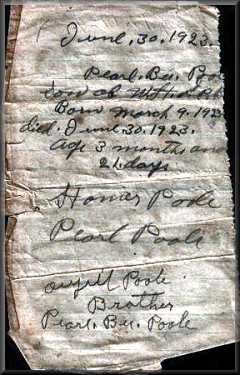 June. 30. 1923.
Pearl. Bee. Poole
son of W. H.
Born March 9. 1923
died. June 30. 1923.
Age 3 months and
21 days
Homer Poole
Pearl Poole
Poole
Brother
Pearl. Bee. Poole